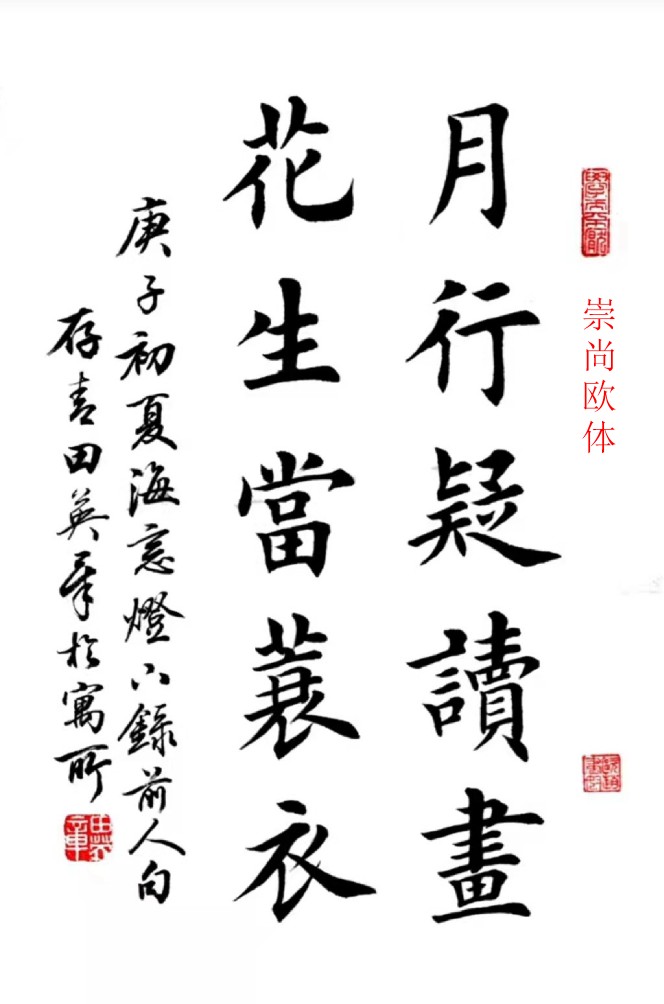 崇尚欧体
月行疑讀畫
花生當蓑衣
庚子初夏海窓燈下錄前人句
存青田英章於寓所
田英章